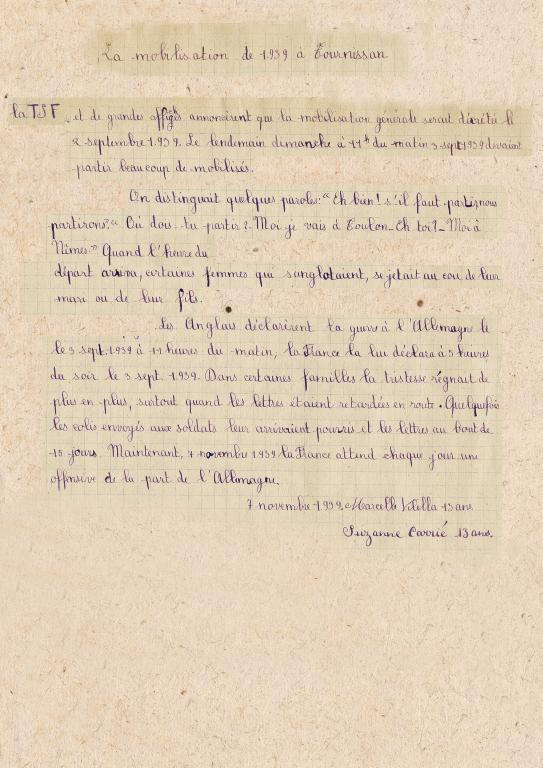 La mobilisation de 1939 à Tournissan
la TSF et de grandes affiges annoncèrent que la mobilisation générale serait décrétée le
2 septembre 1939. Le lendemain dimanche à 11h du matin 3 sept 1939 devaient
partir beaucoup de mobilisés.
On distinguait quelques paroles: "Eh bien! s'il faut partir, nous
partirons." "Où dois-tu partir? - Moi je vais à Toulon - Eh toi? - Moi à
Nîmes." Quand l'heure du
départ arriva, certaines femmes qui sanglotaient, se jetait au cou de leur
mari ou de leur fils.
Les Anglais déclarèrent la guerre à l'Allemagne le
le 3 sept. 1939 à 11 heures du matin, la France la lui déclara à 5 heures
du soir le 3 sept. 1939. Dans certaines familles la tristesse régnait de
plus en plus, surtout quand les lettres étaient retardées en route. Quelquefois
les colis envoyés aux soldats leur arrivaient pourris et les lettres au bout de
15 jours. Maintenant, 7 novembre 1939 la France attend chaque jour une
offensive de la part de l'Allemagne.
7 novembre 1939. Marcelle 13 ans
Suzanne Carrié 13 ans.